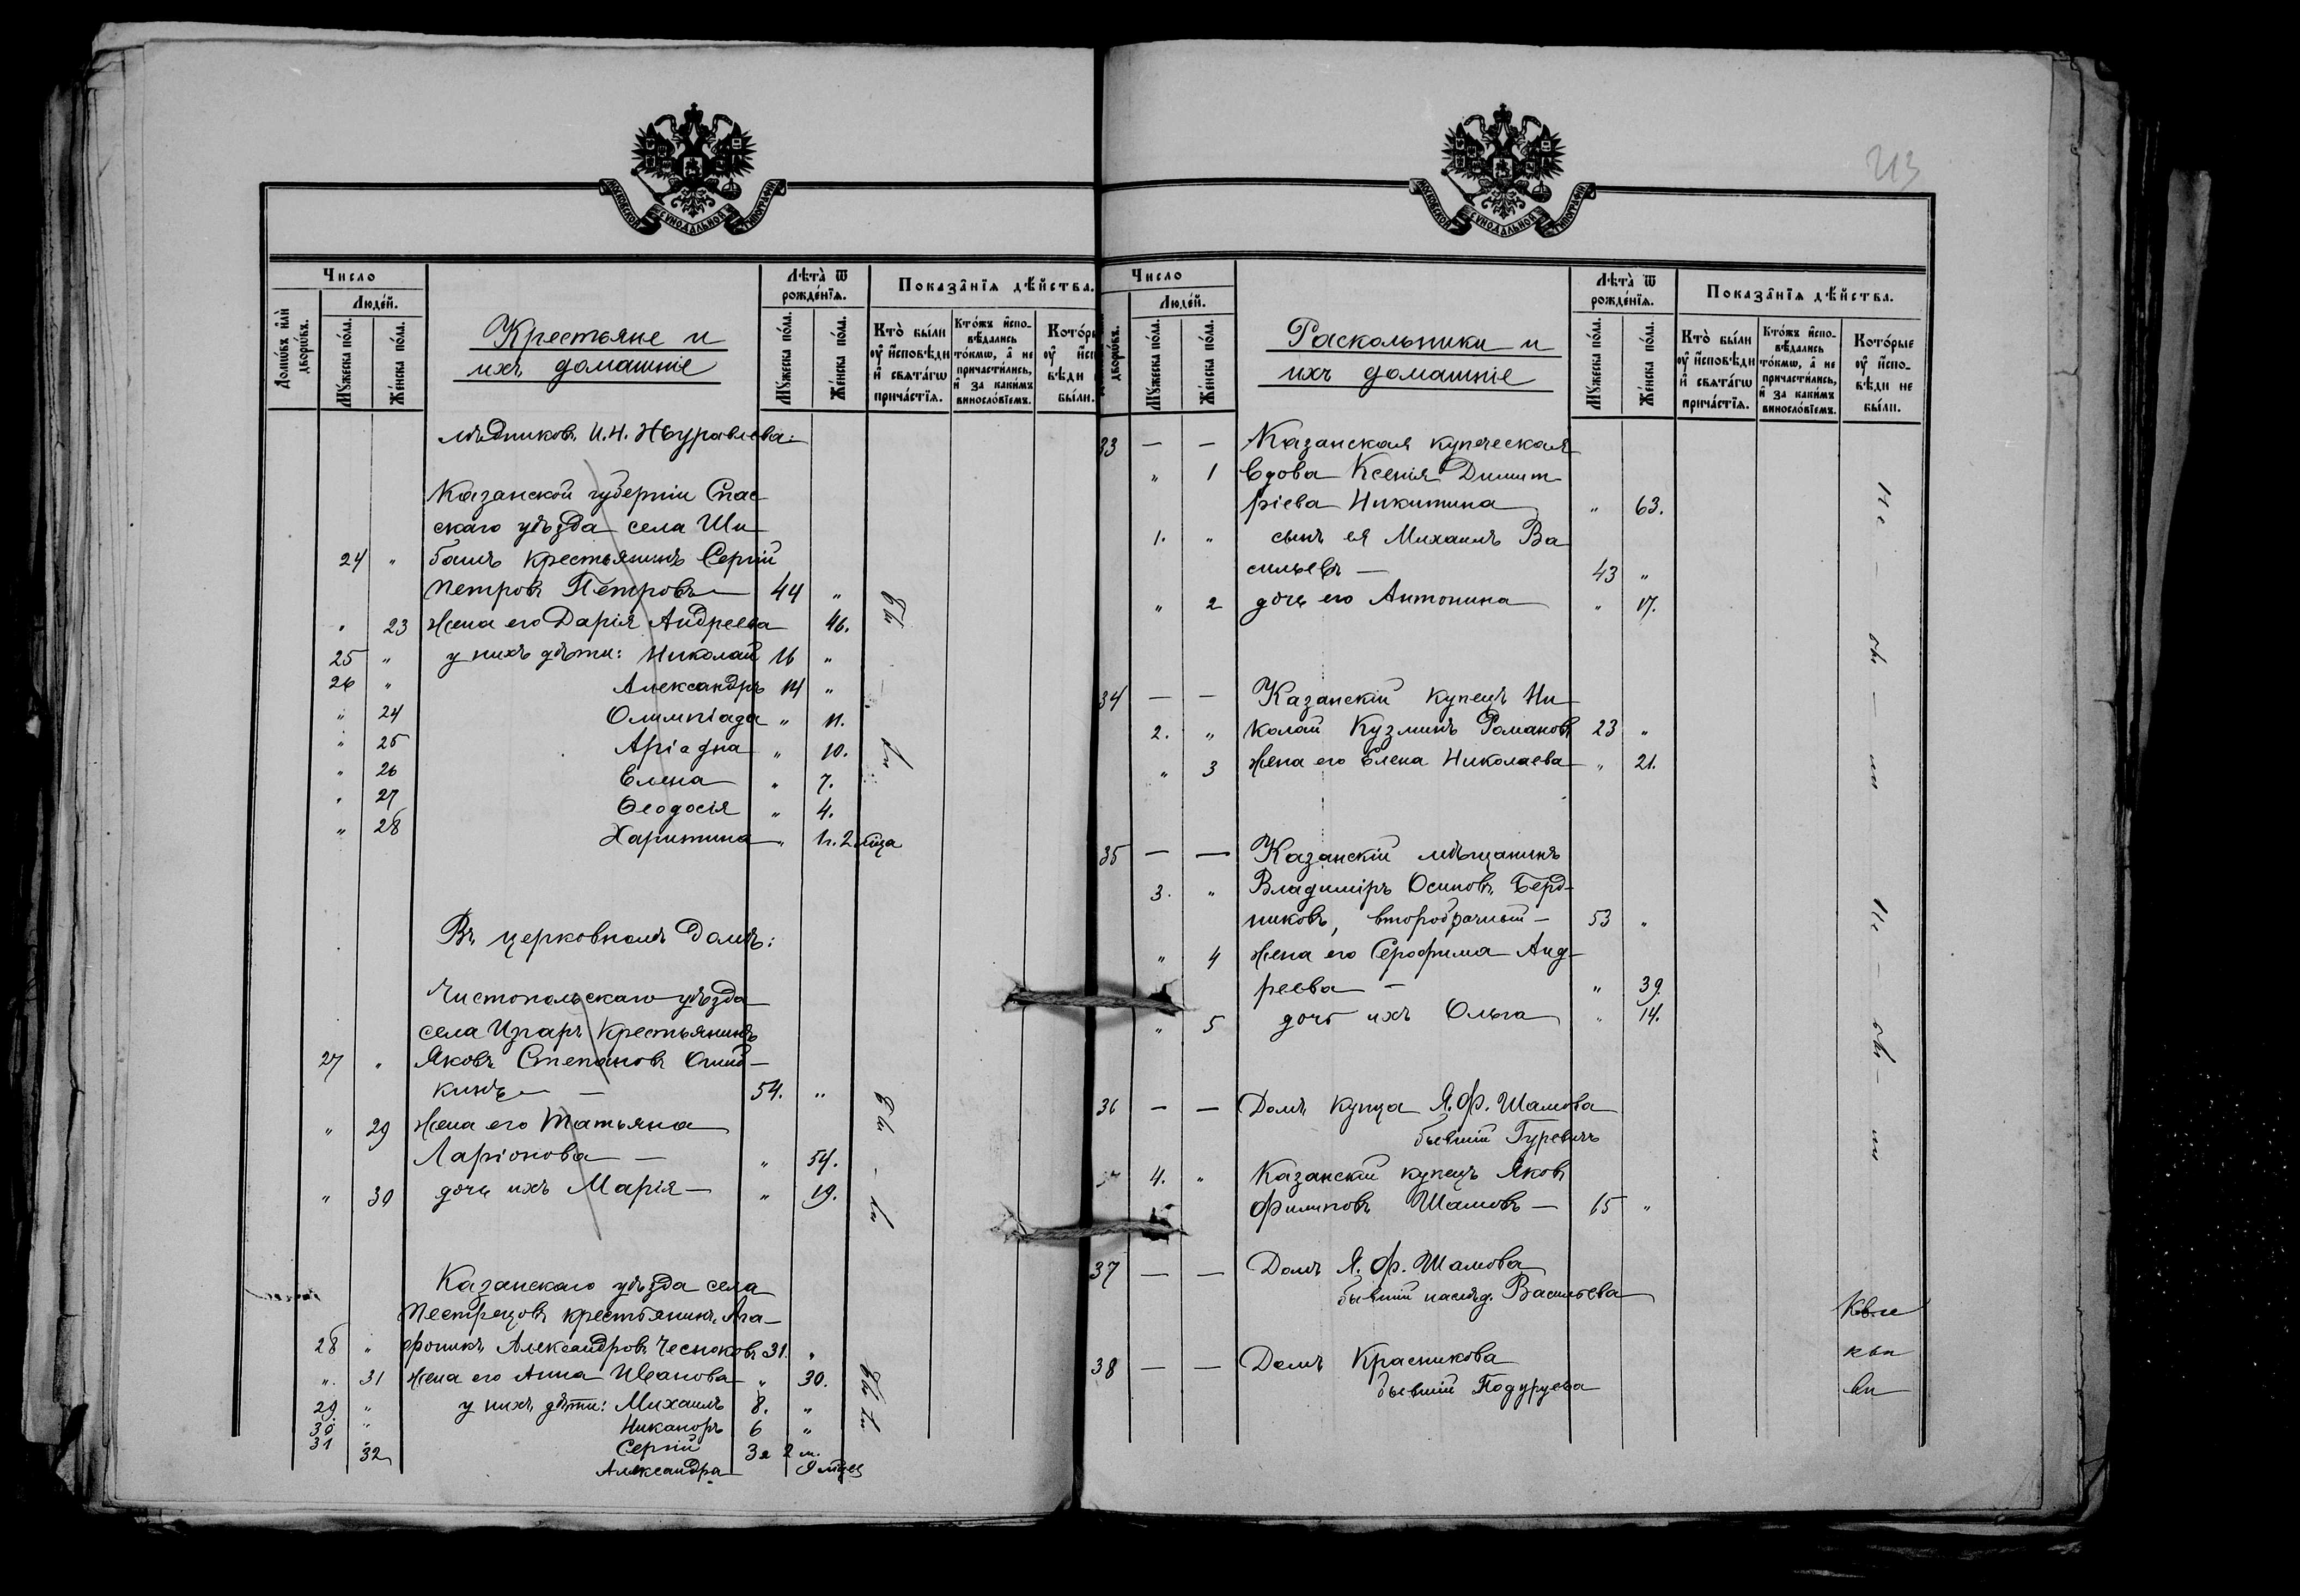 МОСКОВСКОЙ СѴНОДАЛЬНОЙ ТИПОГРАФІИ
Число
Людей.
Домѡвъ и҆лѝ дворѡвъ.
Мꙋжеска по́ла.
Же́нска по́ла.
Крестьяне и
ихъ домашніе
Лѣта̀ ѿ рожде́нїѧ.
Мꙋжеска по́ла.
Же́нска по́ла.
Показа̂нїѧ дѣ́йства.
Кто̀ бы́ли ᲂу҆ и҆сповѣди и҆ свѧта́гѡ прича́стїѧ.
Кто́жъ и҆сповѣдались то́кмѡ, а҆ не причасти́лись, и҆ за каки́мъ винословїемъ.
мѣдниковъ И. Н. Журавлева:
Казанской губерніи Спас
скаго уѣзда села Ши
24 " башъ крестьянинъ Сергій
Петровъ Петровъ 44 "
" 23 жена его Дарія Андреева 46.
25 " у нихъ дѣти: Николай 16 "
26 " Александръ 14 "
" 24 Олимпіада " 11.
" 25 Аріадна " 10.
" 26 Елена " 7.
" 27 Ѳеодосія " 4.
" 28 Харитина " 1 г. 2 мѣца
Въ церковномъ домѣ:
Чистопольскаго уѣзда
села Изгаръ крестьянинъ
27 " Яковъ Степановъ
кинъ 54. "
" 29 жена его Татьяна
Ларіонова — " 54.
" 30 дочь ихъ Марія — " 19.
Казанскаго уѣзда села
Пестрецовъ крестьянинъ Ага
28 " фоникъ Александровъ Чесноковъ 31. "
" 31 жена его Анна Иванова " 30.
29. " у нихъ дѣти: Михаилъ 8. "
30 " Никаноръ 6 "
31 Сергій 3 г 2 м.
32 Александра 9 мѣцъ
были
были
были
213
МОСКОВСКОЙ СѴНОДАЛЬНОЙ ТИПОГРАФІИ
Число
Людей.
дворѡвъ.
Мꙋжеска по́ла.
Же́нска по́ла.
Раскольники и
ихъ домашніе
Лѣта̀ ѿ рожде́нїѧ.
Мꙋжеска по́ла.
Же́нска по́ла.
Показа̂нїѧ дѣ́йства.
Кто̀ бы́ли ᲂу҆ и҆сповѣди и҆ свѧта́гѡ прича́стїѧ.
Кто́жъ и҆сповѣдались то́кмѡ, а҆ не причасти́лись, и҆ за каки́мъ винословїемъ.
Кото́рые ᲂу҆ и҆сповѣди не бы́ли.
33 — — Казанская купеческая
" 1 вдова Ксенія Димит
ріева Никитина " 63.
1. " сынъ ея Михаилъ Ва
сильевъ — 43 "
" 2 дочь его Антонина " 17.
34 — — Казанскій купецъ Ни
2. " колай Кузминъ Романовъ 23 "
" 3 жена его Елена Николаева " 21.
35 — — Казанскій мѣщанинъ
3. " Владиміръ Осиповъ Берд
никовъ, второбрачный — 53 "
" 4 жена его Серофима Анд
реева — " 39.
" 5 дочь ихъ Ольга " 14.
36 — — Домъ купца Я. Ф. Шамова
бывшій Гуревичъ
4. " Казанскій купецъ Яковъ
Филиповъ Шамовъ — 65 "
37 — — Домъ Я. Ф. Шамова
бывшій наслѣд. Васильева
38 — — Домъ Красникова
бывшій Подуруева
Не — бы — ли
Не — бы — ли